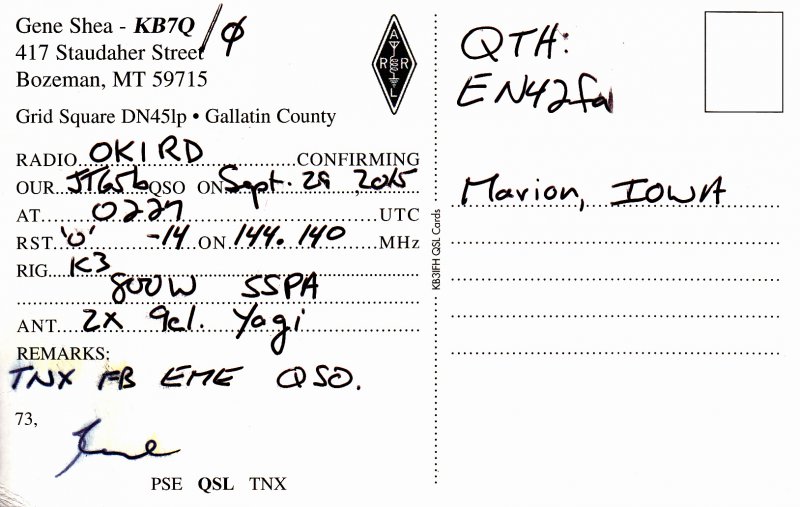 Gene Shea - KB7Q/Ø
417 Staudaher Street
Bozeman, MT 59715
Grid Square DN45lp • Gallatin County
ARRL
RADIO OK1RD CONFIRMING
OUR JT65b QSO ON Sept. 29 2015
AT 0227 UTC
RST 'O' -14 ON 144.140 MHz
RIG K3
800W SSPA
ANT 2x 9el. Yagi
REMARKS:
TNX FB EME QSO.
73,
Gene
PSE QSL TNX
KB3IFH QSL Cards
QTH:
EN42fa
Marion, IOWA